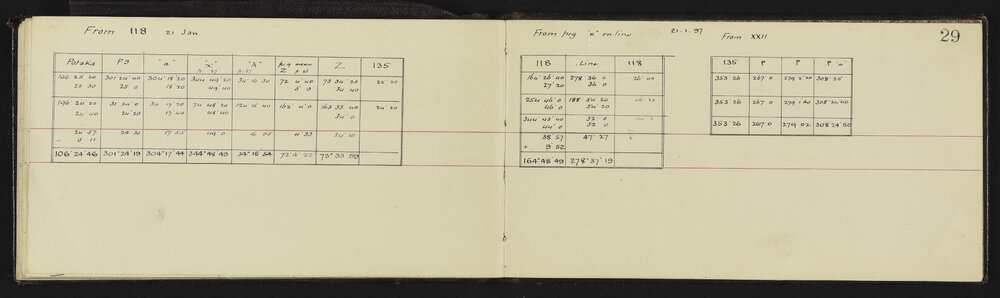 From 118 21 Jan
Potaka P9 "a" "x" "A" peg near Z 135
106 25 20 301 24 40 304 18 20 344 49 20 34 16 30 72 4 40 73 34 20 25 20
25 50 25 0 18 20 49 40 5 0 34 40
196 24 20 31 24 0 34 17 20 74 48 20 124 15 40 162 4 0 163 33 40 24 20
24 40 24 20 17 40 48 40 34 0
24 57 24 30 17 55 49 0 16 05 4 33 34 10
- 0 11
106° 24' 46 301° 24' 19 304° 17' 44 344° 48' 49 34° 15' 54 72° 4' 22 73° 33' 59
From peg "x" on line 21.1.97 From XXII 29
118 Line 118
164 26 40 278 36 0 26 40
27 20 36 0
254 46 0 188 54 20
46 0 54 20
344 43 40 52 0
44 0 52 0
38 57 47' 27
+ 9 52
164° 48' 49 278° 57' 19
135 P P P "a"
353 26 267 0 279 2 20 308 25
353 26 267 0 279 1 40 308 24 40
353 26 267 0 279 02 308 24 50